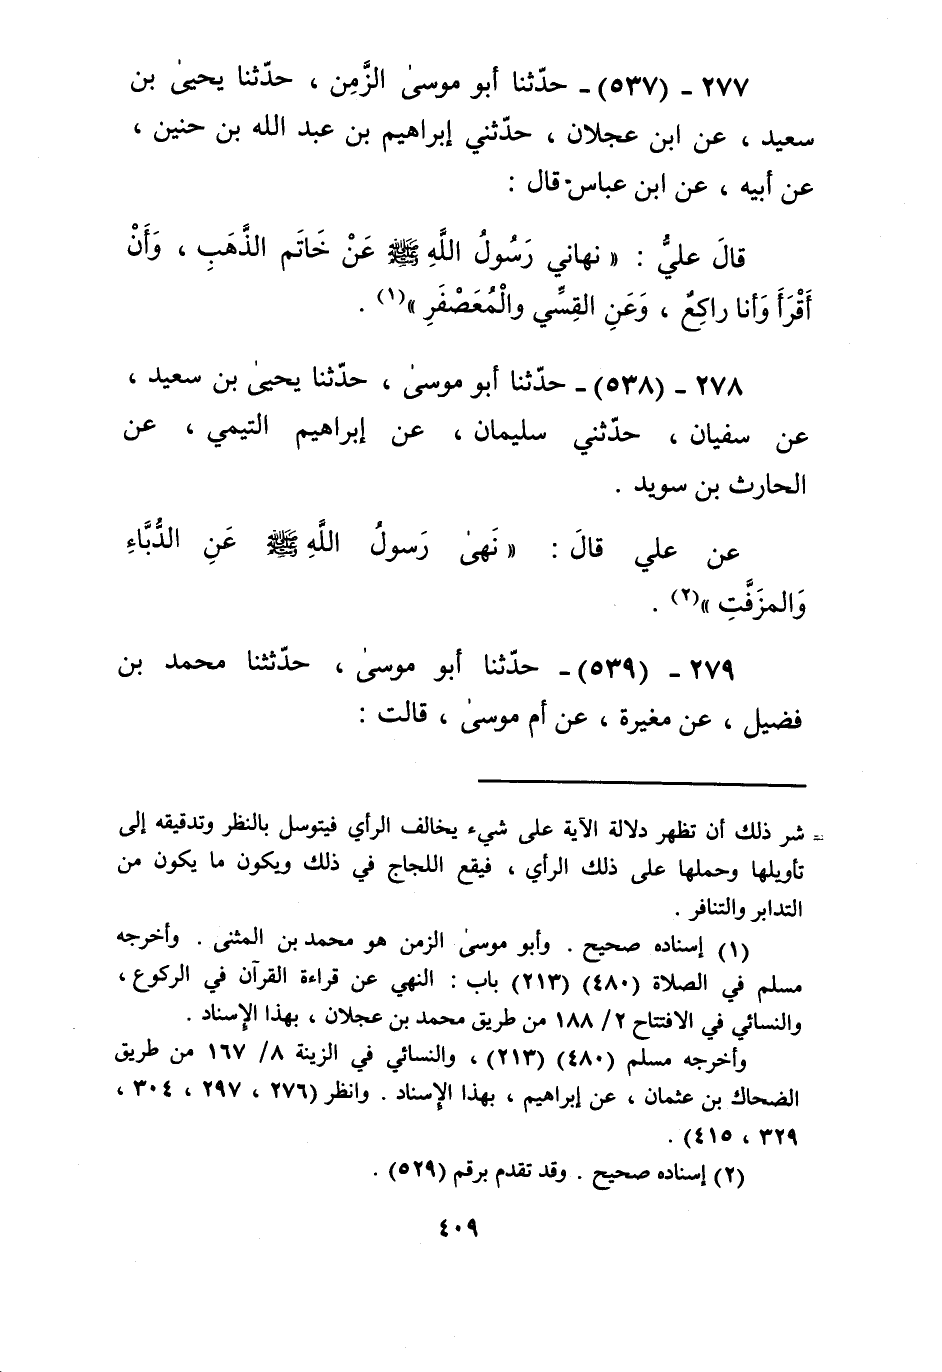 ٢٧٧ - (٥٣٧) - حدّثنا أبو موسىٰ الزَّمِن ، حدّثنا يحيىٰ بن
سعيد ، عن ابن عجلان ، حدّثني إبراهيم بن عبد الله بن حنين ،
عن أبيه ، عن ابن عباس قال :
قالَ عليٌّ : « نهاني رَسُولُ اللَّهِ ﷺ عَنْ خَاتَم الذَّهَبِ ، وَأَنْ
أَقْرَأَ وَأنا راكِعٌ ، وَعَنِ القِسِّي والْمُعَصْفَرِ »(١) .
٢٧٨ - (٥٣٨) - حدّثنا أبو موسىٰ ، حدّثنا يحيىٰ بن سعيد ،
عن سفيان ، حدّثني سليمان ، عن إبراهيم التيمي ، عن
الحارث بن سويد .
عن علي قالَ : « نَهىٰ رَسولُ اللَّهِ ﷺ عَنِ الدُّبَّاءِ
وَالمزَفَّتِ »(٢) .
٢٧٩ - (٥٣٩) - حدّثنا أبو موسىٰ ، حدّثثنا محمد بن
فضيل ، عن مغيرة ، عن أم موسىٰ ، قالت :
= شر ذلك أن تظهر دلالة الآية على شيء يخالف الرأي فيتوسل بالنظر وتدقيقه إلى
تأويلها وحملها على ذلك الرأي ، فيقع اللجاج في ذلك ويكون ما يكون من
التدابر والتنافر .
(١) إسناده صحيح . وأبو موسىٰ الزمن هو محمد بن المثنى . وأخرجه
مسلم في الصلاة (٤٨٠) (٢١٣) باب : النهي عن قراءة القرآن في الركوع ،
والنسائي في الافتتاح ٢/ ١٨٨ من طريق محمد بن عجلان ، بهذا الإسناد .
وأخرجه مسلم (٤٨٠) (٢١٣) ، والنسائي في الزينة ٨/ ١٦٧ من طريق
الضحاك بن عثمان ، عن إبراهيم ، بهذا الإسناد . وانظر (٢٧٦ ، ٢٩٧ ، ٣٠٤ ،
٣٢٩ ، ٤١٥) .
(٢) إسناده صحيح . وقد تقدم برقم (٥٢٩) .
٤٠٩